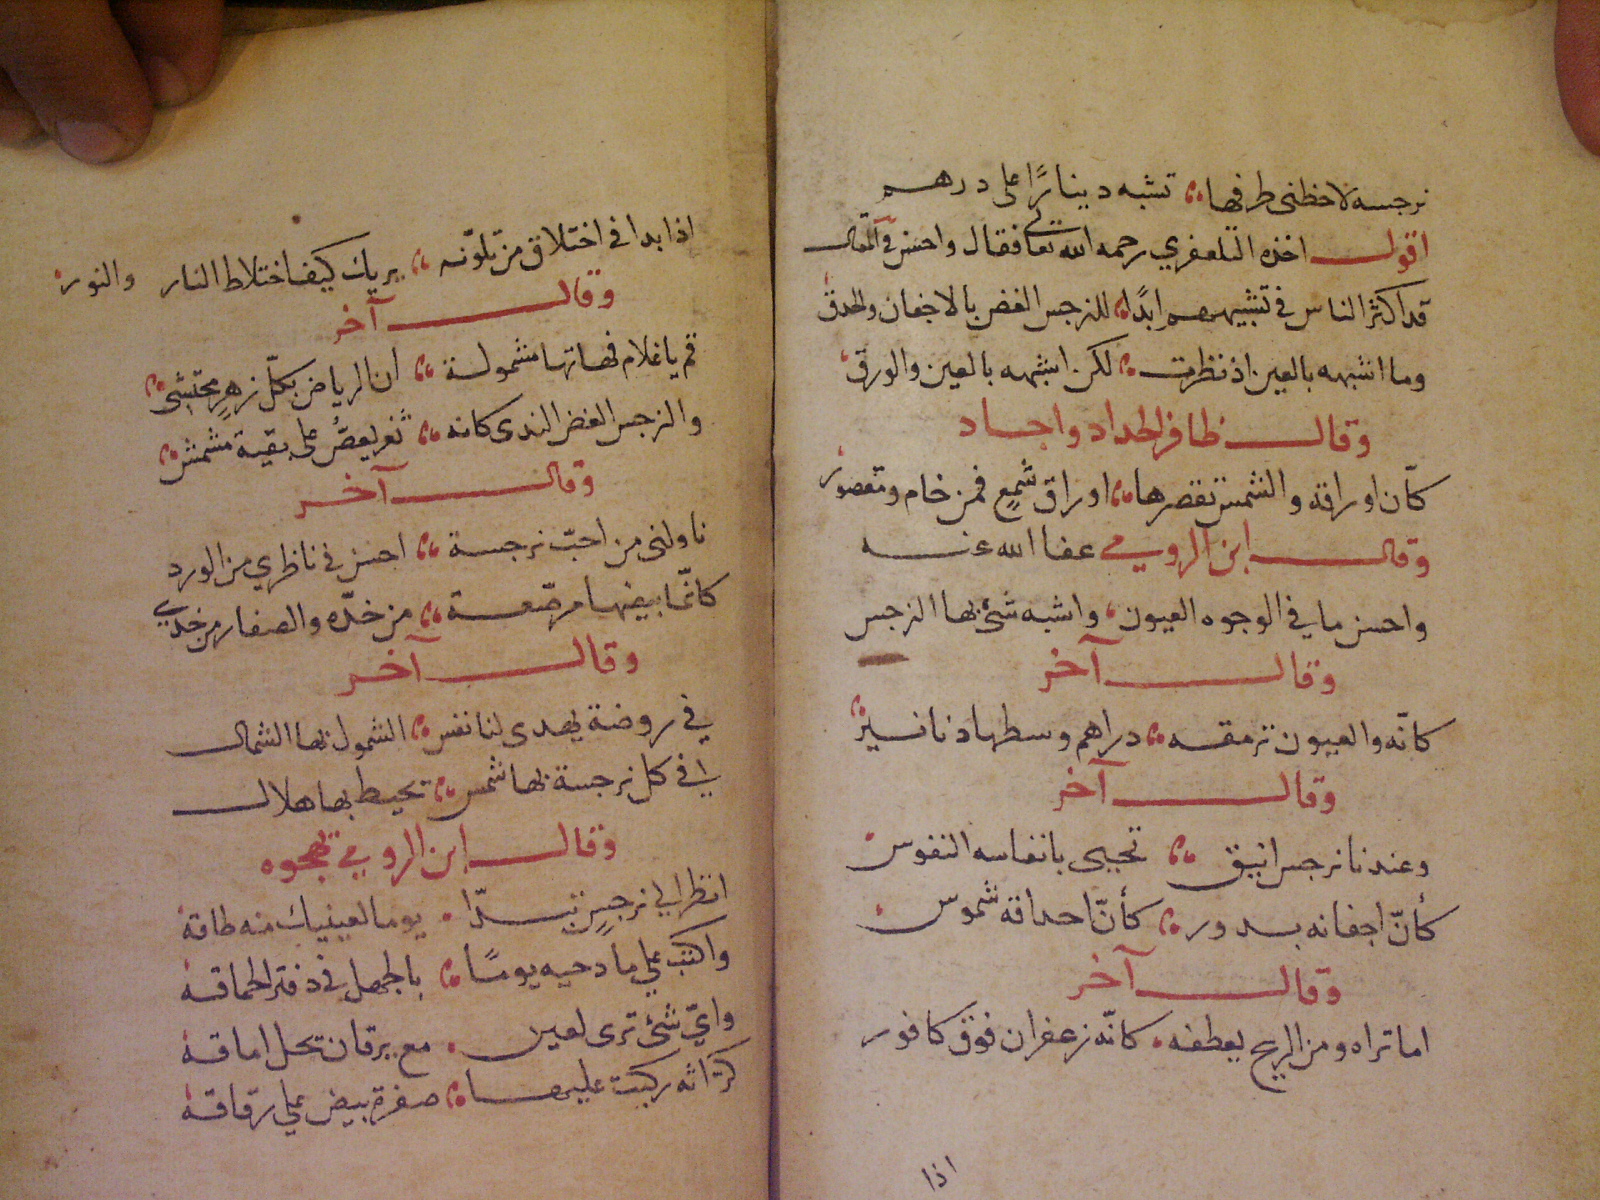 نرجسة لاحظنى طرفها تشبه دينارًا على درهم
اقول اخذه التلعفري رحمه الله تعالى فقال واحسن في المقال
قد اكثر الناس في تشبيههم ابدًا للنرجس الغض بالاجفان والحدق
وما اشبهه بالعين اذ نظرت لكن اشبهه بالعين والورق
وقال ظافر الحداد واجاد
كأن اوراقه والشمس تقصرها اوراق شمع فمن خام ومقصور
وقال ابن الرومي عفا الله عنه
واحسن ما في الوجوه العيون واشبه شئ بها النرجس
وقال آخر
كانّه والعيون ترمقه دراهم وسطها دنانير
وقال آخر
وعندنا نرجس انيق تحيى بانفاسه النفوس
كأنّ اجفانه بدور كأنّ احداقه شموس
وقال آخر
اما تراه ومن الريح يعطفه كانّه زعفران فوق كافور
اذا
اذا بدا في اختلاق من تلوّنه يريك كيف اختلاط النار والنور
وقال آخر
قم يا غلام فهاتها مشمولة ان الرياض بكلّ زهرٍ تحتشى
والنرجس الغض الندى كانه ثغر يعضّ على بقية مشمش
وقال آخر
ناولنى من احبّ نرجسة احسن في ناظري من الورد
كانّما بيضها مرصّعة من خدّه والصفار من خدي
وقال آخر
في روضة يهدى لنا نفس الشمول بها الشمال
في كل نرجسة بها شمس تحيط بها هلال
وقال ابن الرومي يهجوه
انظر الي نرجسٍ تبدّا يوما لعينيك منه طاقة
واكتب علي مادحيه يومًا بالجهل في دفتر الحماقة
وايّ شئ ترى لعين مع يرقان تحل اماقه
كرّاثه ركبت عليها صفرة بيض علي رقاقة